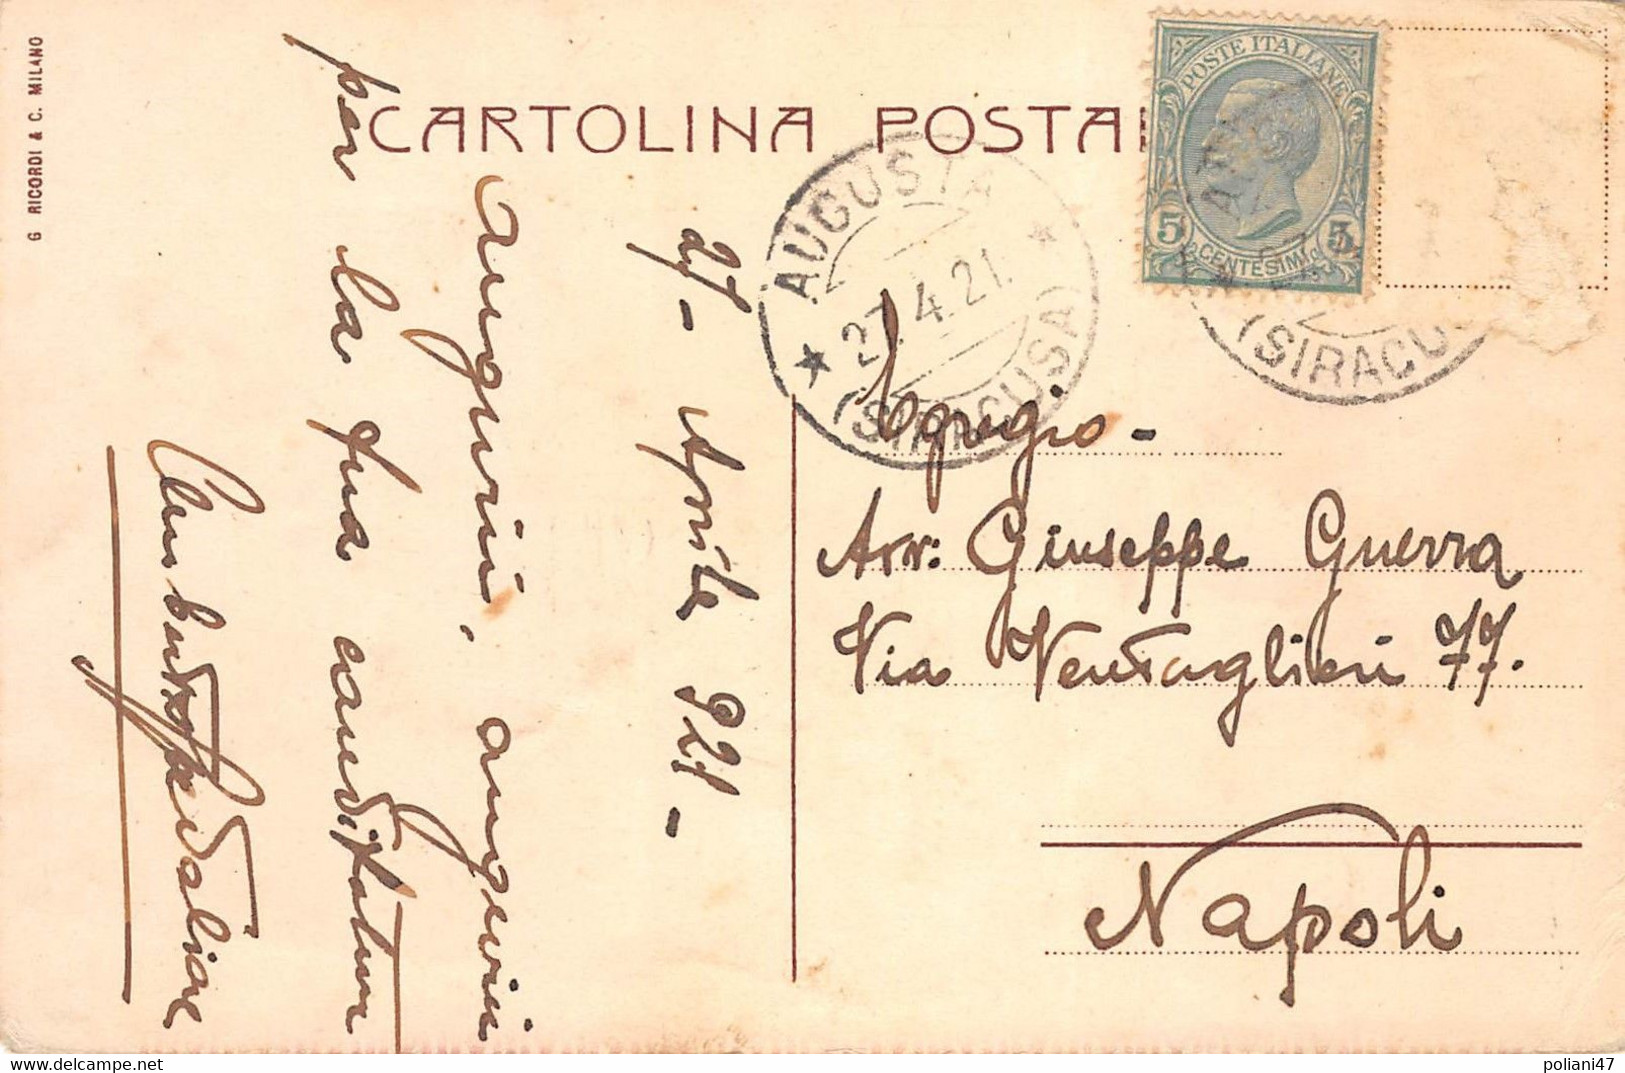 G RICORDI & C. MILANO
CARTOLINA POSTA
POSTE ITALIANE
5 5
CENTESIMI
AUGUSTA
27.4.21.
(SIRACUSA)
(SIRACU
27 - Aprile 921 -
auguri, auguri
per la tua
Egregio -
Avv: Giuseppe Guerra
Via Ventaglieri 77.
Napoli
poliani47